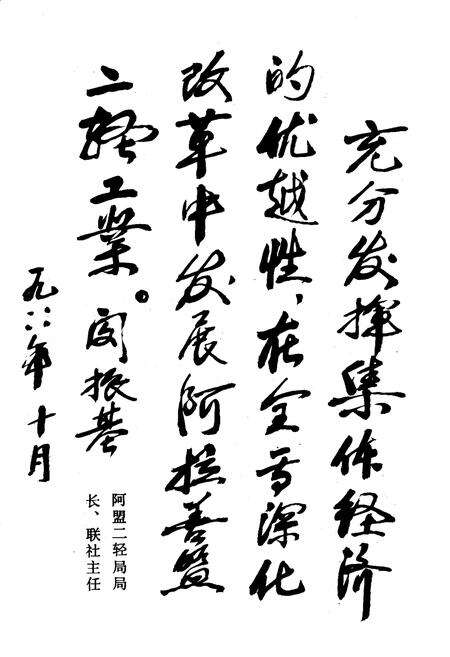 充分发挥集体经济
的优越性、在全面深化
改革中发展阿拉善盟
二轻工业。
振基
阿盟二轻局局
长、联社主任
一九八八年十月